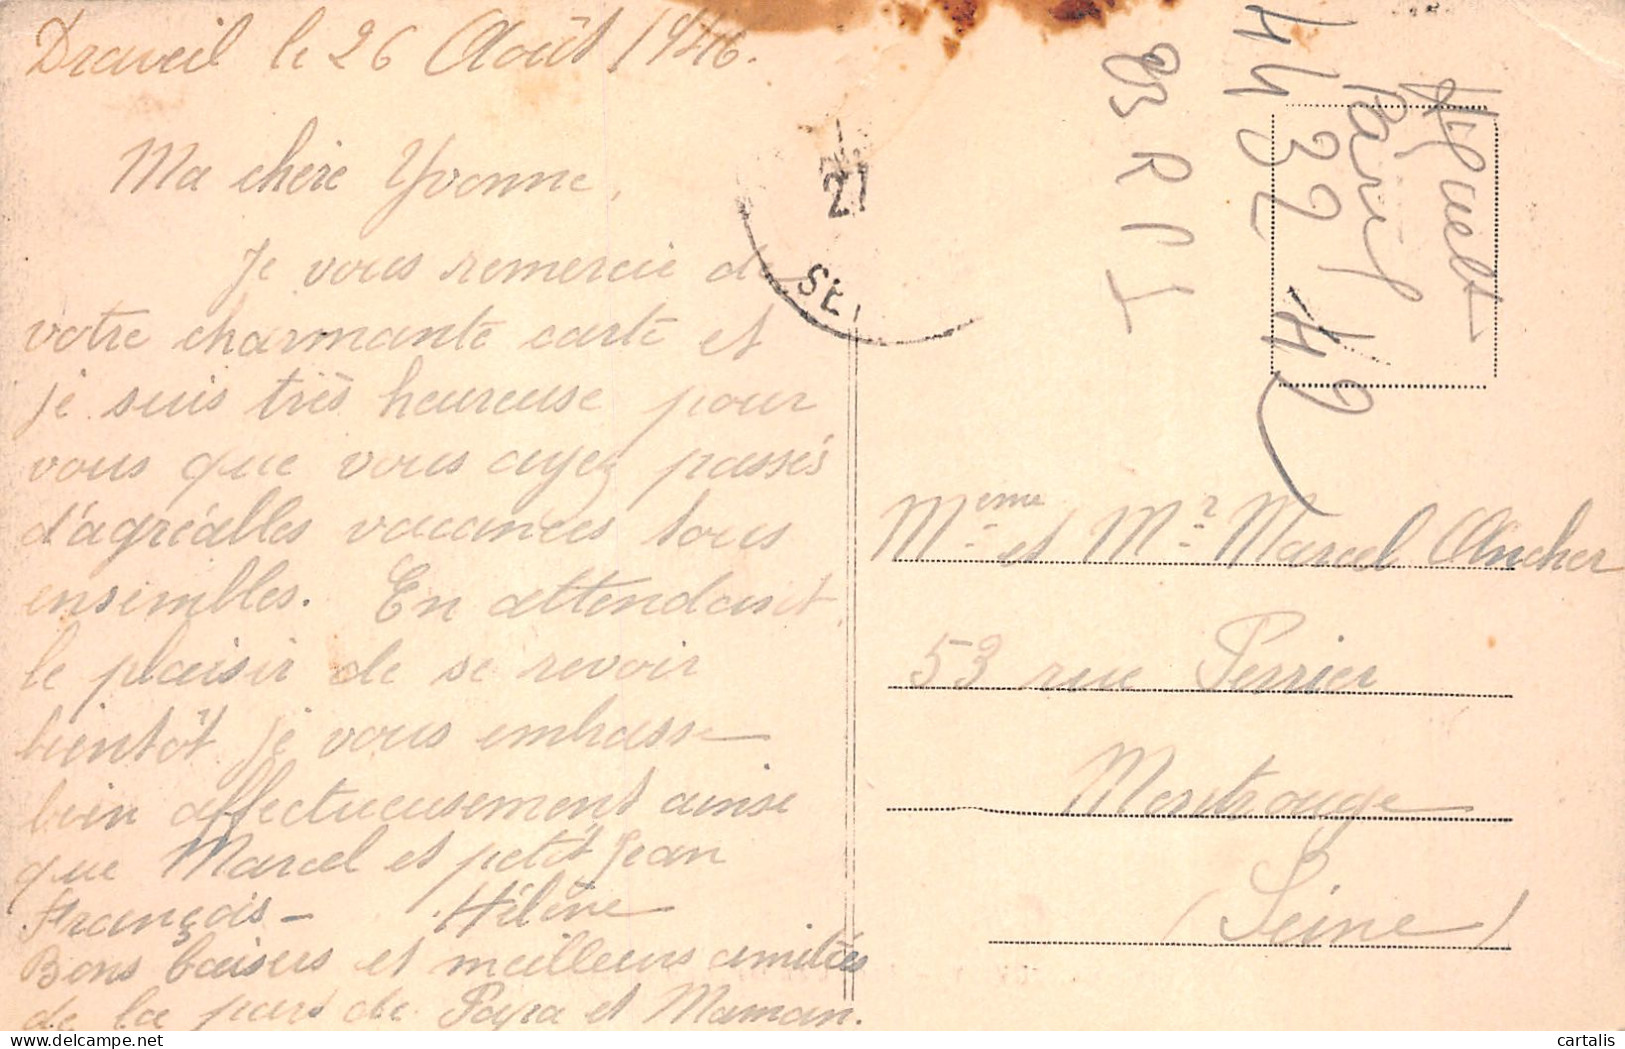 Draveil le 26 Août 1946.
Ma chère Yvonne,
Je vous remercie de
votre charmante carte et
je suis très heureuse pour
vous que vous ayez passés
d'agréables vacances tous
ensembles. En attendant
le plaisir de se revoir
bientôt je vous embrasse
bien affectueusement ainsi
que Marcel et petit Jean
François - Hélène
Bons baisers et meilleurs amitiés
de la part de Papa et Maman.
27
SEI
83 R P
44 32 49
Paris
Mᵉᵐᵉ et Mʳ Marcel Ancher
53 rue Perrier
Montrouge
(Seine)
cartalis
delcampe.net